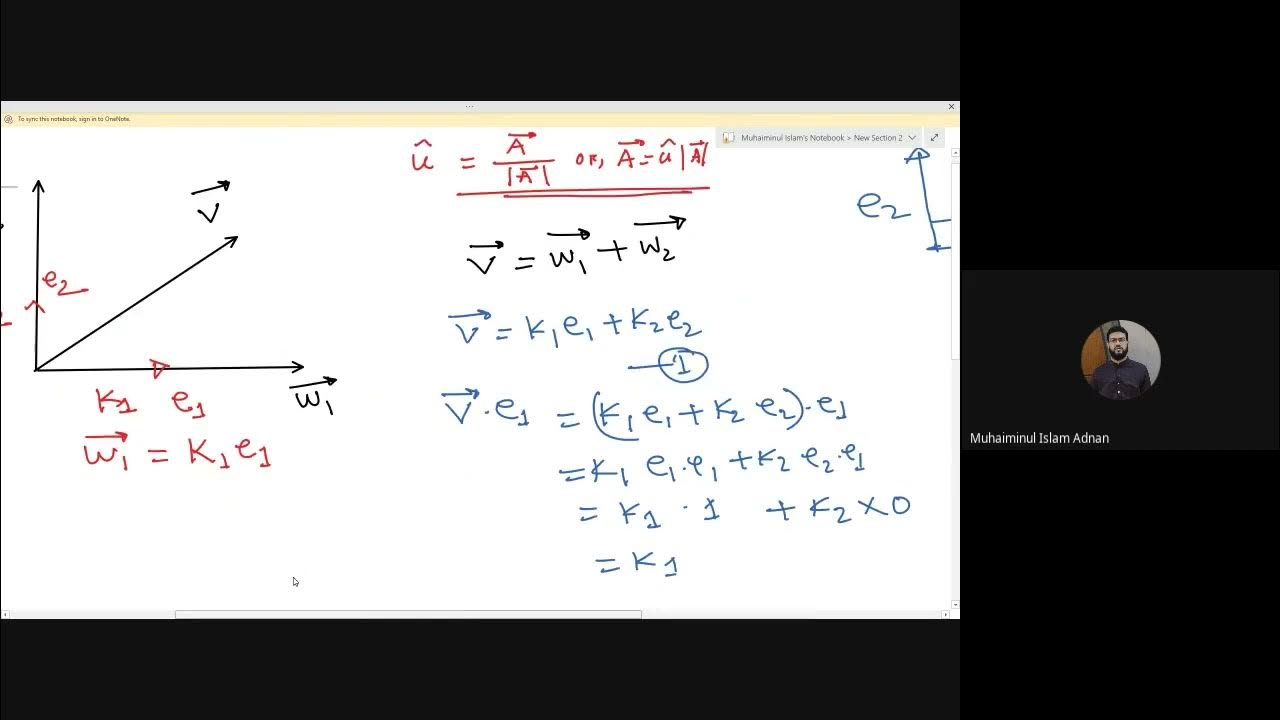 To sync this notebook, sign in to OneNote.
Muhaiminul Islam's Notebook > New Section 2
û = A⃗ / |A⃗| or, A⃗ = û |A⃗|
V⃗
e₂
V⃗ = w⃗₁ + w⃗₂
e₂
V⃗ = K₁e₁ + K₂e₂
—①
K₁ e₁
w⃗₁
w⃗₁ = K₁e₁
V⃗ · e₁ = (K₁ e₁ + K₂ e₂) · e₁
= K₁ e₁·e₁ + K₂ e₂·e₁
= K₁ · 1 + K₂ × 0
= K₁
Muhaiminul Islam Adnan